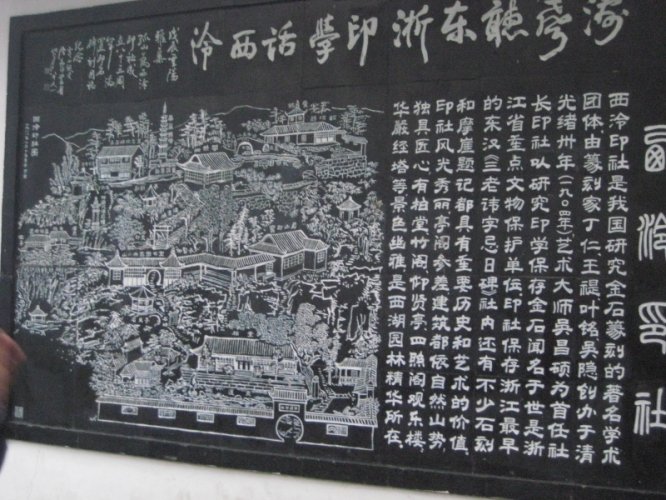 西泠印社
涛聲聽东浙印學話西泠
西泠印社是我国研究金石篆刻的著名学术
团体由篆刻家丁仁王禔叶铭吴隐创办于清
光绪卅年(一九〇四年)艺术大师吴昌硕为首任社
长印社以研究印学保存金石闻名于世是浙
江省重点文物保护单位印社保存浙江最早
的东汉《三老讳字忌日碑》社内还有不少石刻
和摩崖题记都具有重要历史和艺术的价值
印社风光秀丽亭阁参差建筑都依自然山势
独具匠心有柏堂竹阁仰贤亭四照阁观乐楼
华严经塔等景色幽雅是西湖园林精华所在
戊辰重陽
雅集
西泠印社图